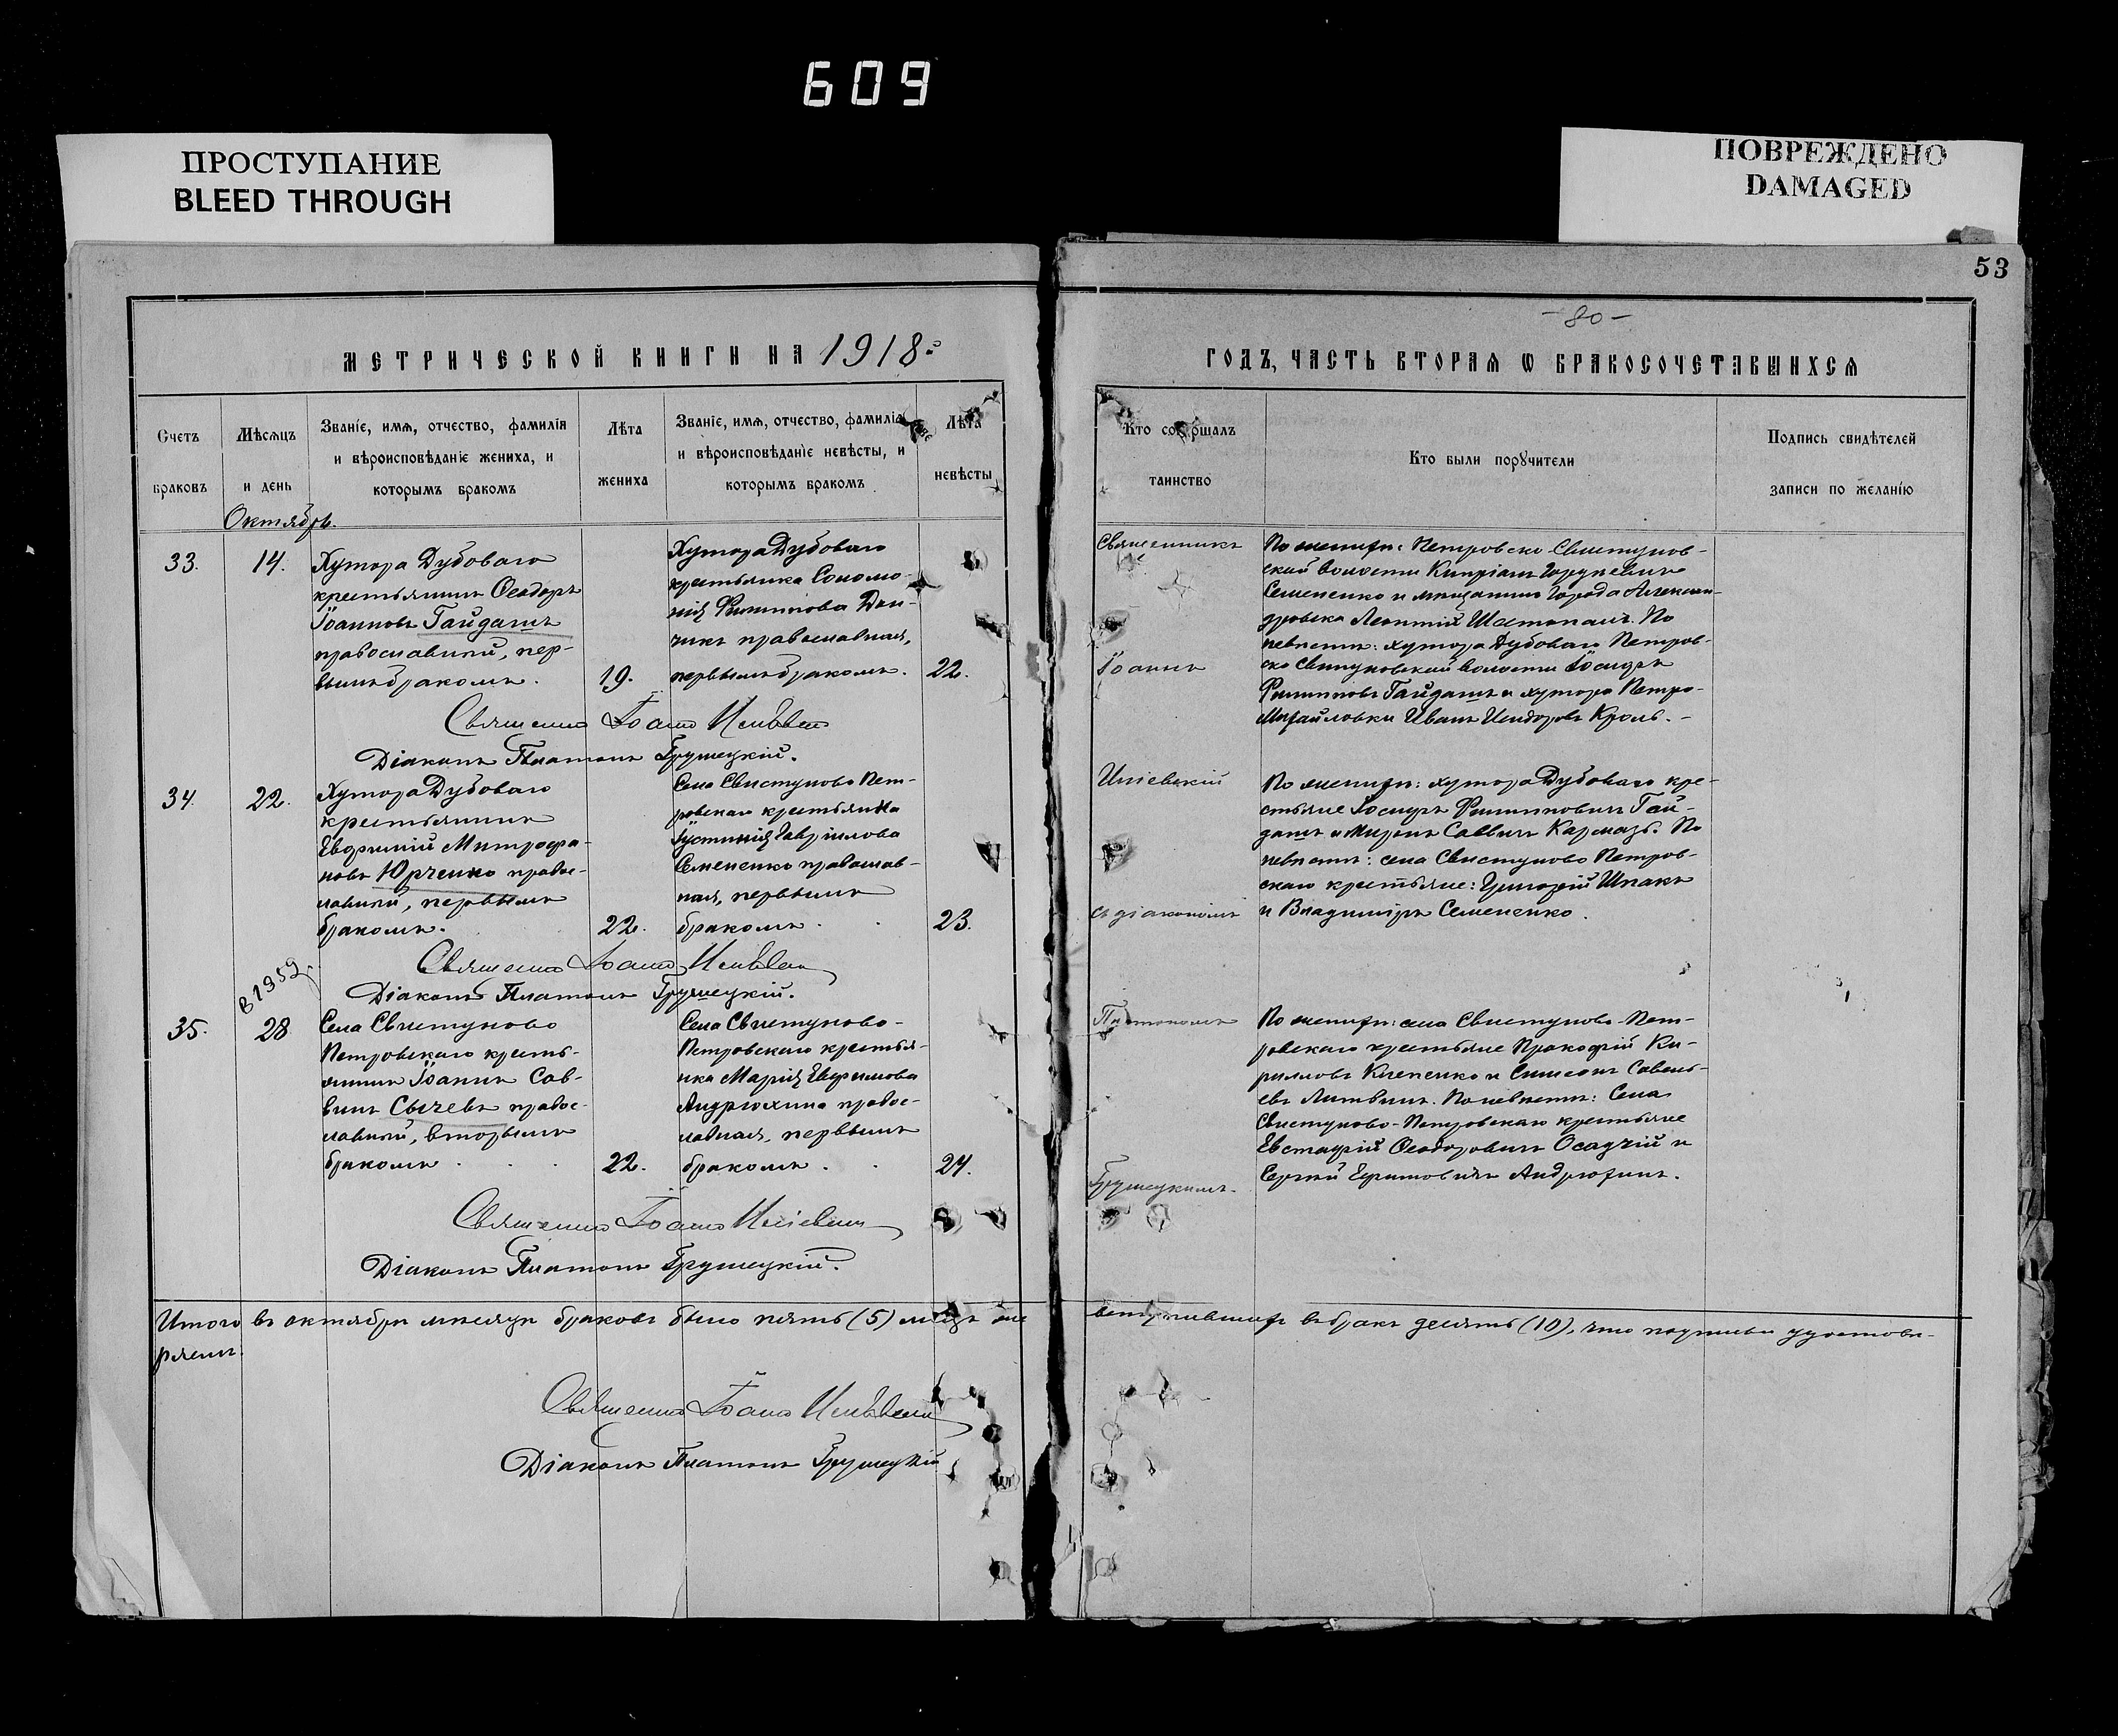 609
ПРОСТУПАНИЕ
BLEED THROUGH
ПОВРЕЖДЕНО
DAMAGED
53
- 80 -
МЕТРИЧЕСКОЙ КНИГИ НА 1918й
ГОДЪ, ЧАСТЬ ВТОРАЯ Ѡ БРАКОСОЧЕТАВШИХСЯ
Счетъ браковъ
Мѣсяцъ и день
Званіе, имя, отчество, фамилія
и вѣроисповѣданіе жениха, и
которымъ бракомъ
Лѣта жениха
Званіе, имя, отчество, фамилія
и вѣроисповѣданіе невѣсты, и
которымъ бракомъ
Лѣта невѣсты
Кто совершалъ таинство
Кто были поручители
Подпись свидѣтелей
записи по желанію
Октябрь.
33.
14.
Хутора Дубоваго
крестьянинъ Ѳеодоръ
Іоанновъ Гайдашъ
православный, пер-
вымъ бракомъ.
19.
Хутора Дубоваго
крестьянка Соломо-
нія Филиппова Дон-
чикъ православная,
первымъ бракомъ.
22.
Священникъ
Іоаннъ
По женихѣ: Петровско-Свистунов-
ской волости Кипріанъ
Семененко и мѣщанинъ города Алексан-
дровска Леонтій Шатопалъ. По
невѣстѣ: хутора Дубоваго Петров-
ско Свистуновской волости Іосифъ
Филипповъ Гайдашъ и хутора Петро-
Михайловки Иванъ Исидоровъ Кроль. -
Священникъ Іоаннъ Ильевскій
Діаконъ Платонъ Грушецкій.
34.
22.
Хутора Дубоваго
крестьянинъ
Евфимій Митрофа-
новъ Юрченко право-
славный, первымъ
бракомъ.
22.
Села Свистуново Пет-
ровскаго крестьянка
Іустинія Гавріилова
Семененко православ-
ная, первымъ
бракомъ.
23.
Иліевскій
съ діакономъ
По женихѣ: хутора Дубоваго кре-
стьяне Іосифъ Филипповичъ Гай-
дашъ и Миронъ Саввичъ Кармазь. По
невѣстѣ: села Свистуново Петров-
скаго крестьяне: Григорій Шпакъ
и Владиміръ Семененко.
Священникъ Іоаннъ Ильевскій
Діаконъ Платонъ Грушецкій.
В 1952 г.
35.
28
Села Свистуново
Петровскаго кресть-
янинъ Іоаннъ Сав-
винъ Сычевъ право-
славный, вторымъ
бракомъ
22.
Села Свистуново-
Петровскаго крестья-
нка Марія Евфимова
Андрюхина право-
славная, первымъ
бракомъ.
24.
Платономъ
Грушецкимъ.
По женихѣ: села Свистуново-Пет-
ровскаго крестьяне Прокофій Ки-
рилловъ Клепенко и Симеонъ Савель-
евъ Литвинъ. По невѣстѣ: Села
Свистуново-Петровскаго крестьяне
Евстафій Ѳеодоровичъ Осадчій и
Сергій Ефимовичъ Андрюхинъ.
Священникъ Іоаннъ Иліевскій
Діаконъ Платонъ Грушецкій.
Итого въ октябрѣ мѣсяцѣ браковъ было пять (5) лицъ же вступившихъ въ бракъ десять (10), что подписью удостовѣ-
ряемъ.
Священникъ Іоаннъ Ильевскій
Діаконъ Платонъ Грушецкій